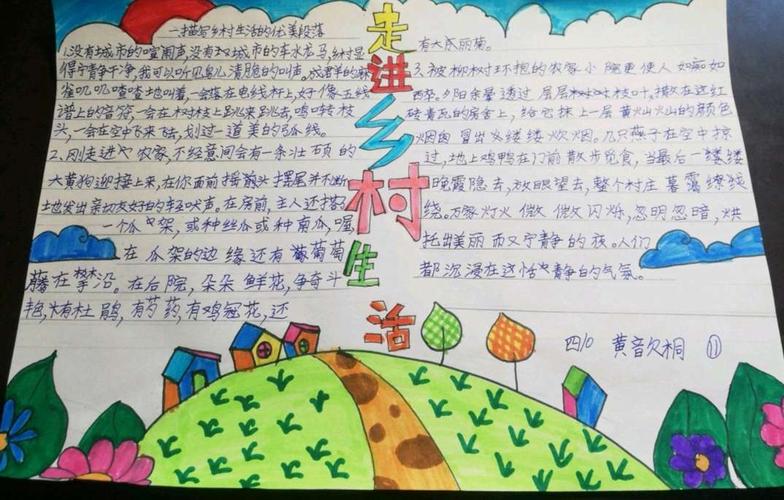 走进乡村生活
一描写乡村生活的优美段落
1.没有城市的喧闹声,没有城市的车水龙马,乡村显
得宁静干净,我可以听见鸟儿清脆的叫声,成群的麻
雀叽叽喳喳地叫着,一会落在电线杆上,好像五线
谱上的音符,一会在树枝上跳来跳去,鸣啭枝
头,一会在空中飞来飞去,划过一道美的弧线。
2、刚走进农家,不经意间会有一条壮硕的
大黄狗迎接上来,在你面前摇头摆尾并不断
地发出亲切友好的轻吠声。在房前,主人还搭
一个瓜架,或种丝瓜或种南瓜,喔
在瓜架的边缘还有葡萄
藤在攀沿。在后院,朵朵鲜花,争奇斗
艳,有杜鹃,有芍药,有鸡冠花,还
有大丽菊。
3、被柳树环抱的农家小院更使人如痴如
醉。夕阳余晕透过层层树枝叶,撒在这红
砖青瓦的房舍上,给它抹上一层黄灿灿的颜色
烟囱冒出缕缕炊烟。几只燕子在空中掠
过,地上鸡鸭在门前散步觅食,当最后一缕缕
晚霞隐去,放眼望去,整个村庄暮霭缭
绕。万家灯火微微闪烁,忽明忽暗,烘
托出美丽而又宁静的夜。人们
都沉浸在这恬静的气氛。
四10 黄音欠桐 11